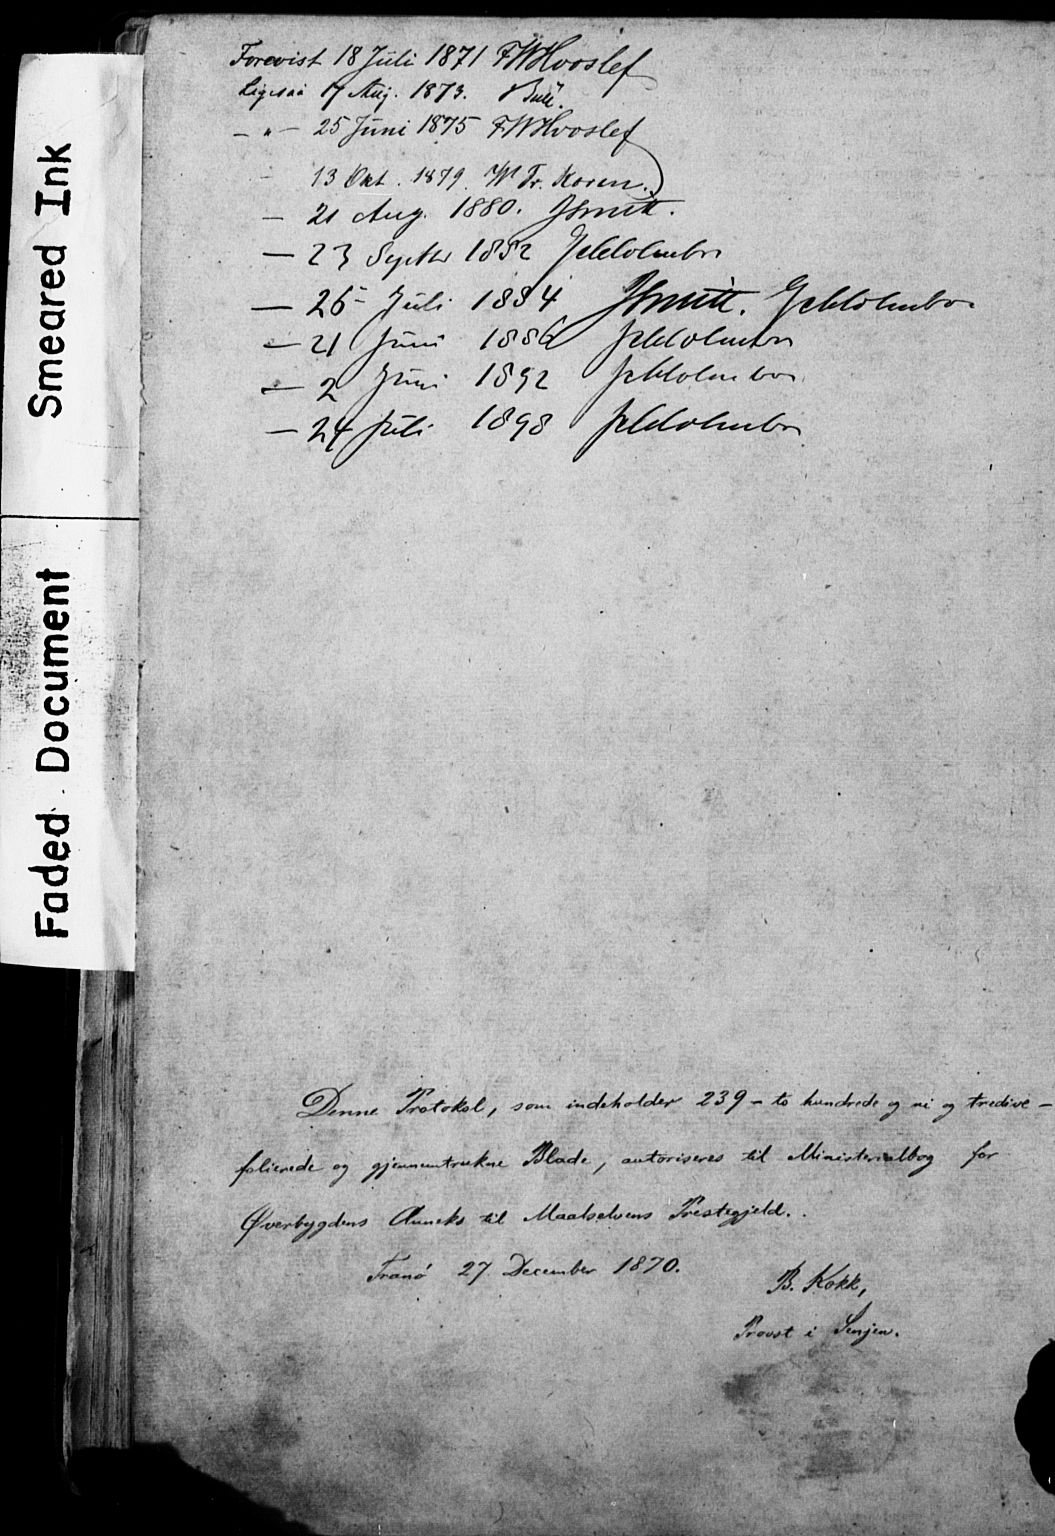 Forevist 18 Juli 1871 FWHvoslef
Ligesaa 17 Aug. 1873.
– " – 25 Juni 1875 FWHvoslef
13 Okt. 1879. W Fr. Koren.
– 21 Aug. 1880. JSmitt.
– 23 Septbr 1882
– 25 Juli 1884 JSmitt.
– 21 Juni 1886
– 2 Juni 1892
– 24 Juli 1898
Smeared Ink
Faded Document
Denne Protokol, som indeholder 239 – to hundrede og ni og tredive –
folierede og gjennemtrukne Blade, autoriseres til Ministerialbog for
Øverbygdens Anneks til Maalselvens Prestegjeld.
Tranø 27 December 1870.
B. Kokk,
Provst i Senjen.